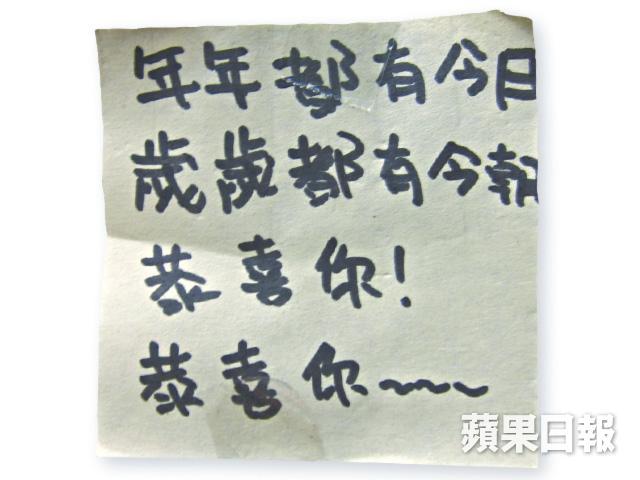 年年都有今日
歲歲都有今朝
恭喜你!
恭喜你~~~
蘋果日報